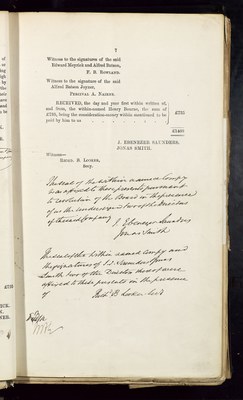 7
Witness to the signatures of the said
Edward Meyrick and Alfred Benson,
F. B. ROWLAND.
Witness to the signature of the said
Alfred Batson Joyner,
PERCIVAL A. NAIRNE.
RECEIVED, the day and year first within written of,
and from, the within-named Henry Bourne, the sum of
£795, being the consideration-money within mentioned to be
paid by him to us
£795
J. EBENEZER SAUNDERS.
JONAS SMITH.
Witness—
The Seal of the within named Company
was affixed to these presents pursuant
to resolution of the Board in the presence
of us the undersigned two of the Directors
of the said Company
J. Ebenezer Saunders
Jonas Smith
The seal of the within named Company and
the signatures of J. E. Saunders Jonas
Smith two of the Directors thereof were
affixed to these presents in the presence
of